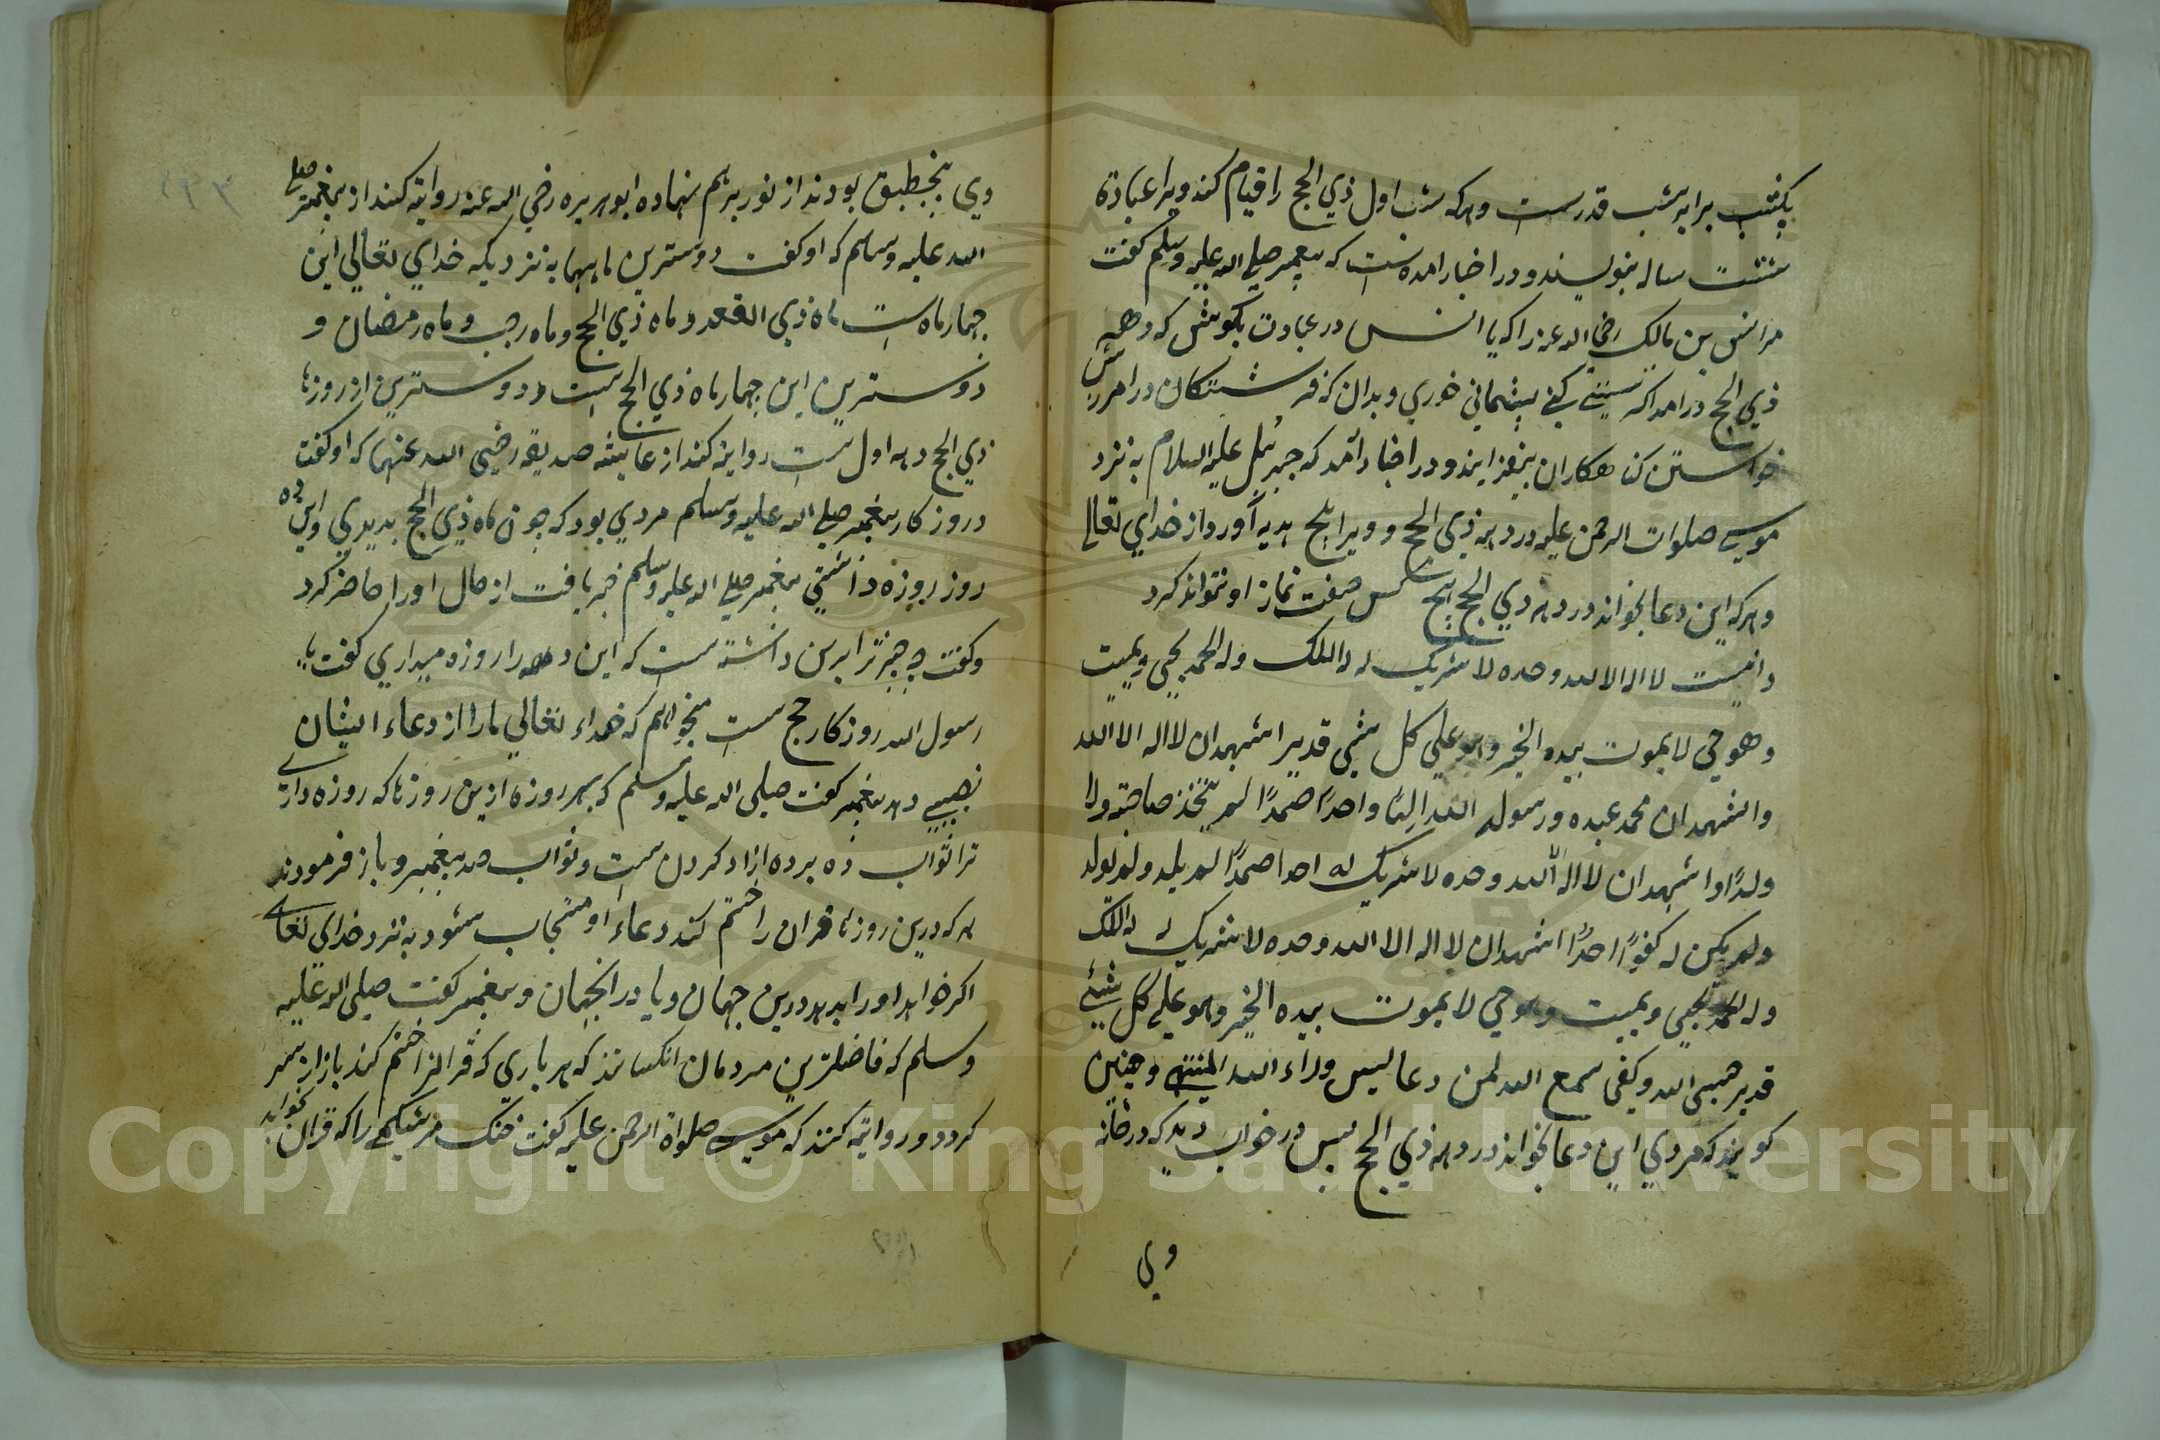 یکشب برابر شب قدرست وهرکه شب اول ذي الحج را قیام کند ویرا عبادة
شصت ساله بنویسند و در اخبار امده است که پیغمبر صلي الله علیه وسلم کفت
مر انس بن مالک رضي الله عنه را که یا انس در عبادت بکوش که دهه
ذي الحج درامد اکر سستي کني پشیماني خوري وبدان که فرشتکان در امرزش
خواستن کناهکاران بیفزایند و در اخبار آمد که جبرئیل علیه السلام به نزد
موسي صلوات الرحمن علیه در دهه ذي الحج و ویرا پنج هدیه آورد از خداي تعالي
وهرکه این دعا بخواند در دهه ذي الحج هیچ کس صفت نماز او نتواند کرد
وانیست لا اله الا الله وحده لا شریک له له الملک وله الحمد یحیي ویمیت
وهو حي لا یموت بیده الخیر وهو علي کل شي قدیر اشهد ان لا اله الا الله
واشهد ان محمد عبده ورسوله الله الهًا واحدًا صمدًا لم یتخذ صاحبة ولا
ولدًا واشهد ان لا اله الا الله وحده لا شریک له احدا صمدًا لم یلد ولم یولد
ولم یکن له کفوًا احدًا اشهد ان لا اله الا الله وحده لا شریک له له الملک
وله الحمد یحیي ویمیت وهو حي لا یموت بیده الخیر وهو علي کل شيئ
قدیر حسبي الله وکفي سمع الله لمن دعا لیس وراء الله المنتهي وچنین
کویند که مردي این دعا بخواند در دهه ذي الحج پس در خواب دید که در خانه
وي
وي پنج طبق بودند از نور برهم نهاده ابوهریره رضي الله عنه روایة کند از پیغمبر صلي
الله علیه وسلم که او کفت دوسترین ماهها به نزدیکه خداي تعالي این
چهار ماه است ماه ذي القعد و ماه ذي الحج و ماه رجب و ماه رمضان و
دوسترین این چهار ماه ذي الحج است و دوسترین از روزها
ذي الحج دهه اول است روایة کند از عایشه صدیقه رضي الله عنها که او کفت
در روز کار پیغمبر صلي الله علیه وسلم مردي بود که چون ماه ذي الحج بدیدي واین ده
روز روزه داشتي پیغمبر صلي الله علیه وسلم خبر یافت از حال او را حاضر کرد
وکفت چه چیز ترا برین داشته است که این دهه را روزه میداري کفت یا
رسول الله روز کار حج است میخواهم که خداء تعالي ما را از دعاء ایشان
نصیبي دهد پیغمبر کفت صلي الله علیه وسلم که بهر روزه ازین روزها که روزه داري
ترا ثواب ده برده ازاد کردن است وثواب صد پیغمبر وباز فرمودند
هرکه درین روزها قران را ختم کند دعاء او مستجاب شود به نزد خداي تعالي
اکر خواهد او را بدهد درین جهان ویا در انجهان وپیغمبر کفت صلي الله علیه
وسلم که فاضلترین مردمان انکسانند که هر باري که قرانرا ختم کند باز از سر
کردد و روایة کنند که موسي صلواة الرحمن علیه کفت خنک مر شکمي را که قران بخواند
Copyright © King Saud University